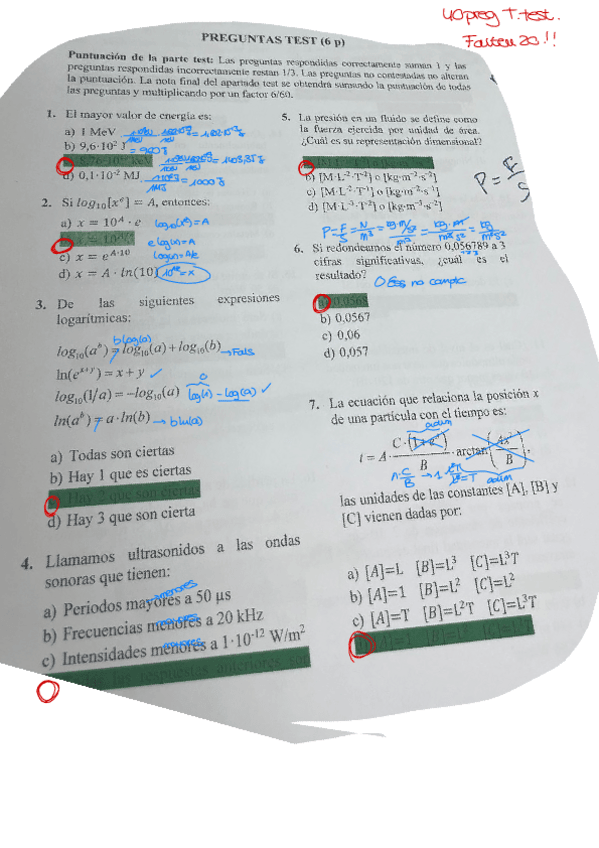 40 preg T. test.
Falten 20!!
PREGUNTAS TEST (6 p)
Puntuación de la parte test: Las preguntas respondidas correctamente suman 1 y las
preguntas respondidas incorrectamente restan 1/3. Las preguntas no contestadas no alteran
la puntuación. La nota final del apartado test se obtendrá sumando la puntuación de todas
las preguntas y multiplicando por un factor 6/60.
1. El mayor valor de energía es:
a) 1 MeV
b) 9,6·10² J = 960 J
d) 0,1·10⁻² MJ = 1000 J
2. Si log₁₀[xᵉ] = A, entonces:
a) x = 10ᴬ · e log₁₀(xᵉ)=A
e log(x)=A
c) x = e^(A·10) log(x)=A/e
d) x = A · ln(10)
3. De las siguientes expresiones
logarítmicas:
b log(a)
log₁₀(aᵇ) = log₁₀(a)+log₁₀(b) → Fals
ln(e^(x+y)) = x + y ✓
log₁₀(1/a) = −log₁₀(a) log(1) - log(a) ✓
ln(aᵇ) = a·ln(b) → b ln(a)
a) Todas son ciertas
b) Hay 1 que es ciertas
c) Hay 2 que son ciertas
d) Hay 3 que son cierta
4. Llamamos ultrasonidos a las ondas
sonoras que tienen:
menores
a) Periodos mayores a 50 µs
mayores
b) Frecuencias menores a 20 kHz
mayores
c) Intensidades menores a 1·10⁻¹² W/m²
las respuestas anteriores son
5. La presión en un fluido se define como
la fuerza ejercida por unidad de área.
¿Cuál es su representación dimensional?
b) [M·L⁻²·T²] o [kg·m⁻²·s⁻²]
c) [M·L⁻²·T¹] o [kg·m⁻²·s⁻¹]
d) [M·L⁻³·T⁻²] o [kg·m⁻³·s⁻²]
P = F/S
6. Si redondeamos el número 0,056789 a 3
cifras significativas, ¿cuál es el
resultado?
a) 0,0568
b) 0,0567
c) 0,06
d) 0,057
7. La ecuación que relaciona la posición x
de una partícula con el tiempo es:
adim
las unidades de las constantes [A], [B] y
[C] vienen dadas por:
a) [A]=L [B]=L³ [C]=L³T
b) [A]=1 [B]=L² [C]=L²
c) [A]=T [B]=L²T [C]=L³T